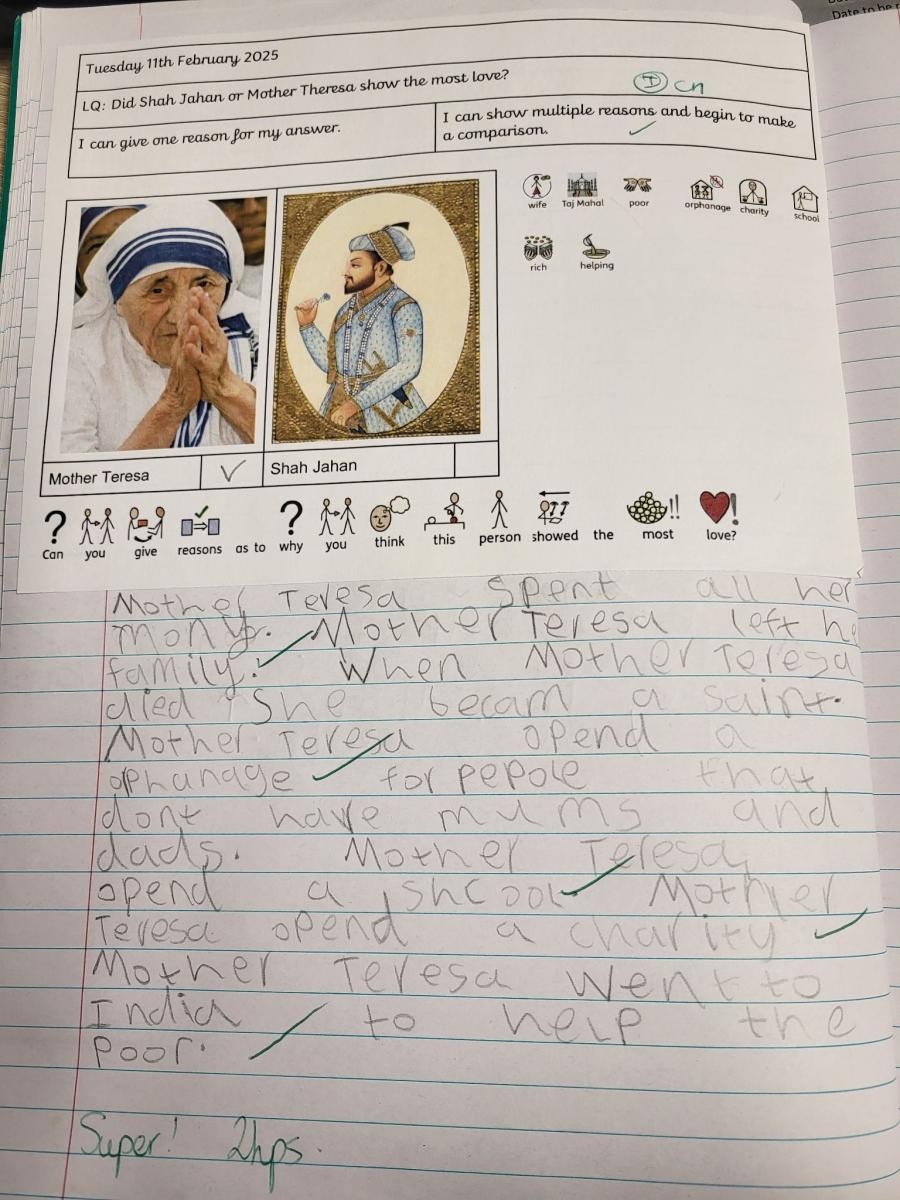 Date to be r
Tuesday 11th February 2025
LQ: Did Shah Jahan or Mother Theresa show the most love?
I cn
I can give one reason for my answer.
I can show multiple reasons and begin to make
a comparison.
wife Taj Mahal poor orphanage charity school
rich helping
Mother Teresa
Shah Jahan
? Can you give reasons as to ? why you think this person showed the most love?
Mother Teresa spent all her
mony. Mother Teresa left he
family. When Mother Teresa
died She becam a saint.
Mother Teresa opend a
orphanage for pepole that
dont have mums and
dads. Mother Teresa
opend a shcool Mother
Teresa opend a charity
Mother Teresa went to
India to help the
Poor.
Super! 2hps.